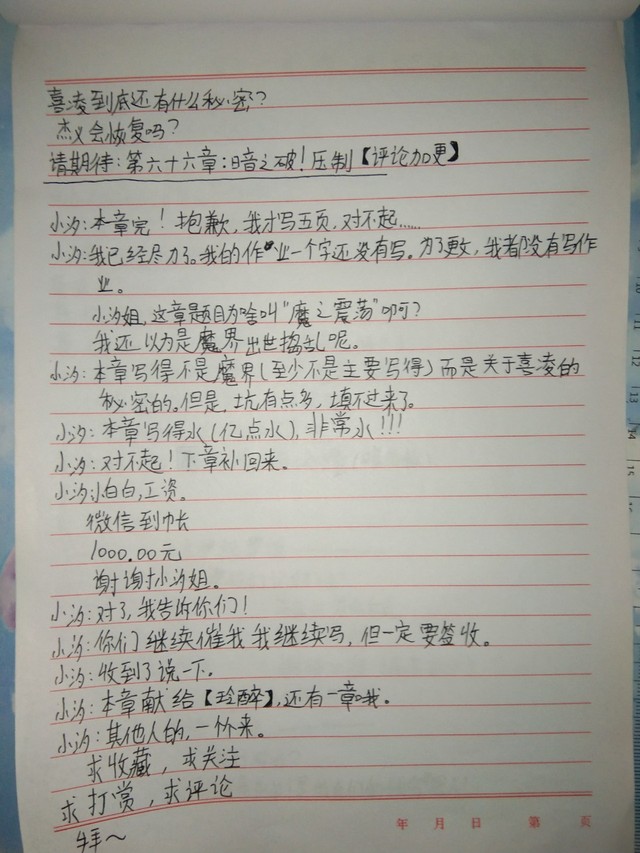 喜凌到底还有什么秘密?
杰义会恢复吗?
请期待:第六十六章:暗之破!压制【评论加更】
小汐:本章完!抱歉,我才写五页,对不起……
小汐:我已经尽力了。我的作业一个字还没有写。为了更文,我都没有写作
业。
小汐姐,这章题目为啥叫"魔之震荡"啊?
我还以为是魔界出世捣乱呢。
小汐:本章写得不是魔界(至少不是主要写得)而是关于喜凌的
秘密的。但是,坑有点多,填不过来了。
小汐:本章写得水(亿点水),非常水!!!
小汐:对不起!下章补回来。
小汐:小白白,工资。
微信到帐
1000.00元
谢谢小汐姐。
小汐:对了,我告诉你们!
小汐:你们继续催我我继续写,但一定要签收。
小汐:收到了说一下。
小汐:本章献给【玲醉】,还有一章哦。
小汐:其他人的,一个个来。
求收藏,求关注
求打赏,求评论
拜~
年 月 日 第 页